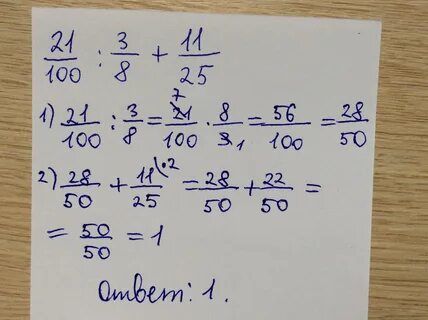 21/100 : 3/8 + 11/25
1) 21/100 : 3/8 = 21⁷/100 · 8/3₁ = 56/100 = 28/50
2) 28/50 + 11\·2/25 = 28/50 + 22/50 =
= 50/50 = 1
Ответ: 1.